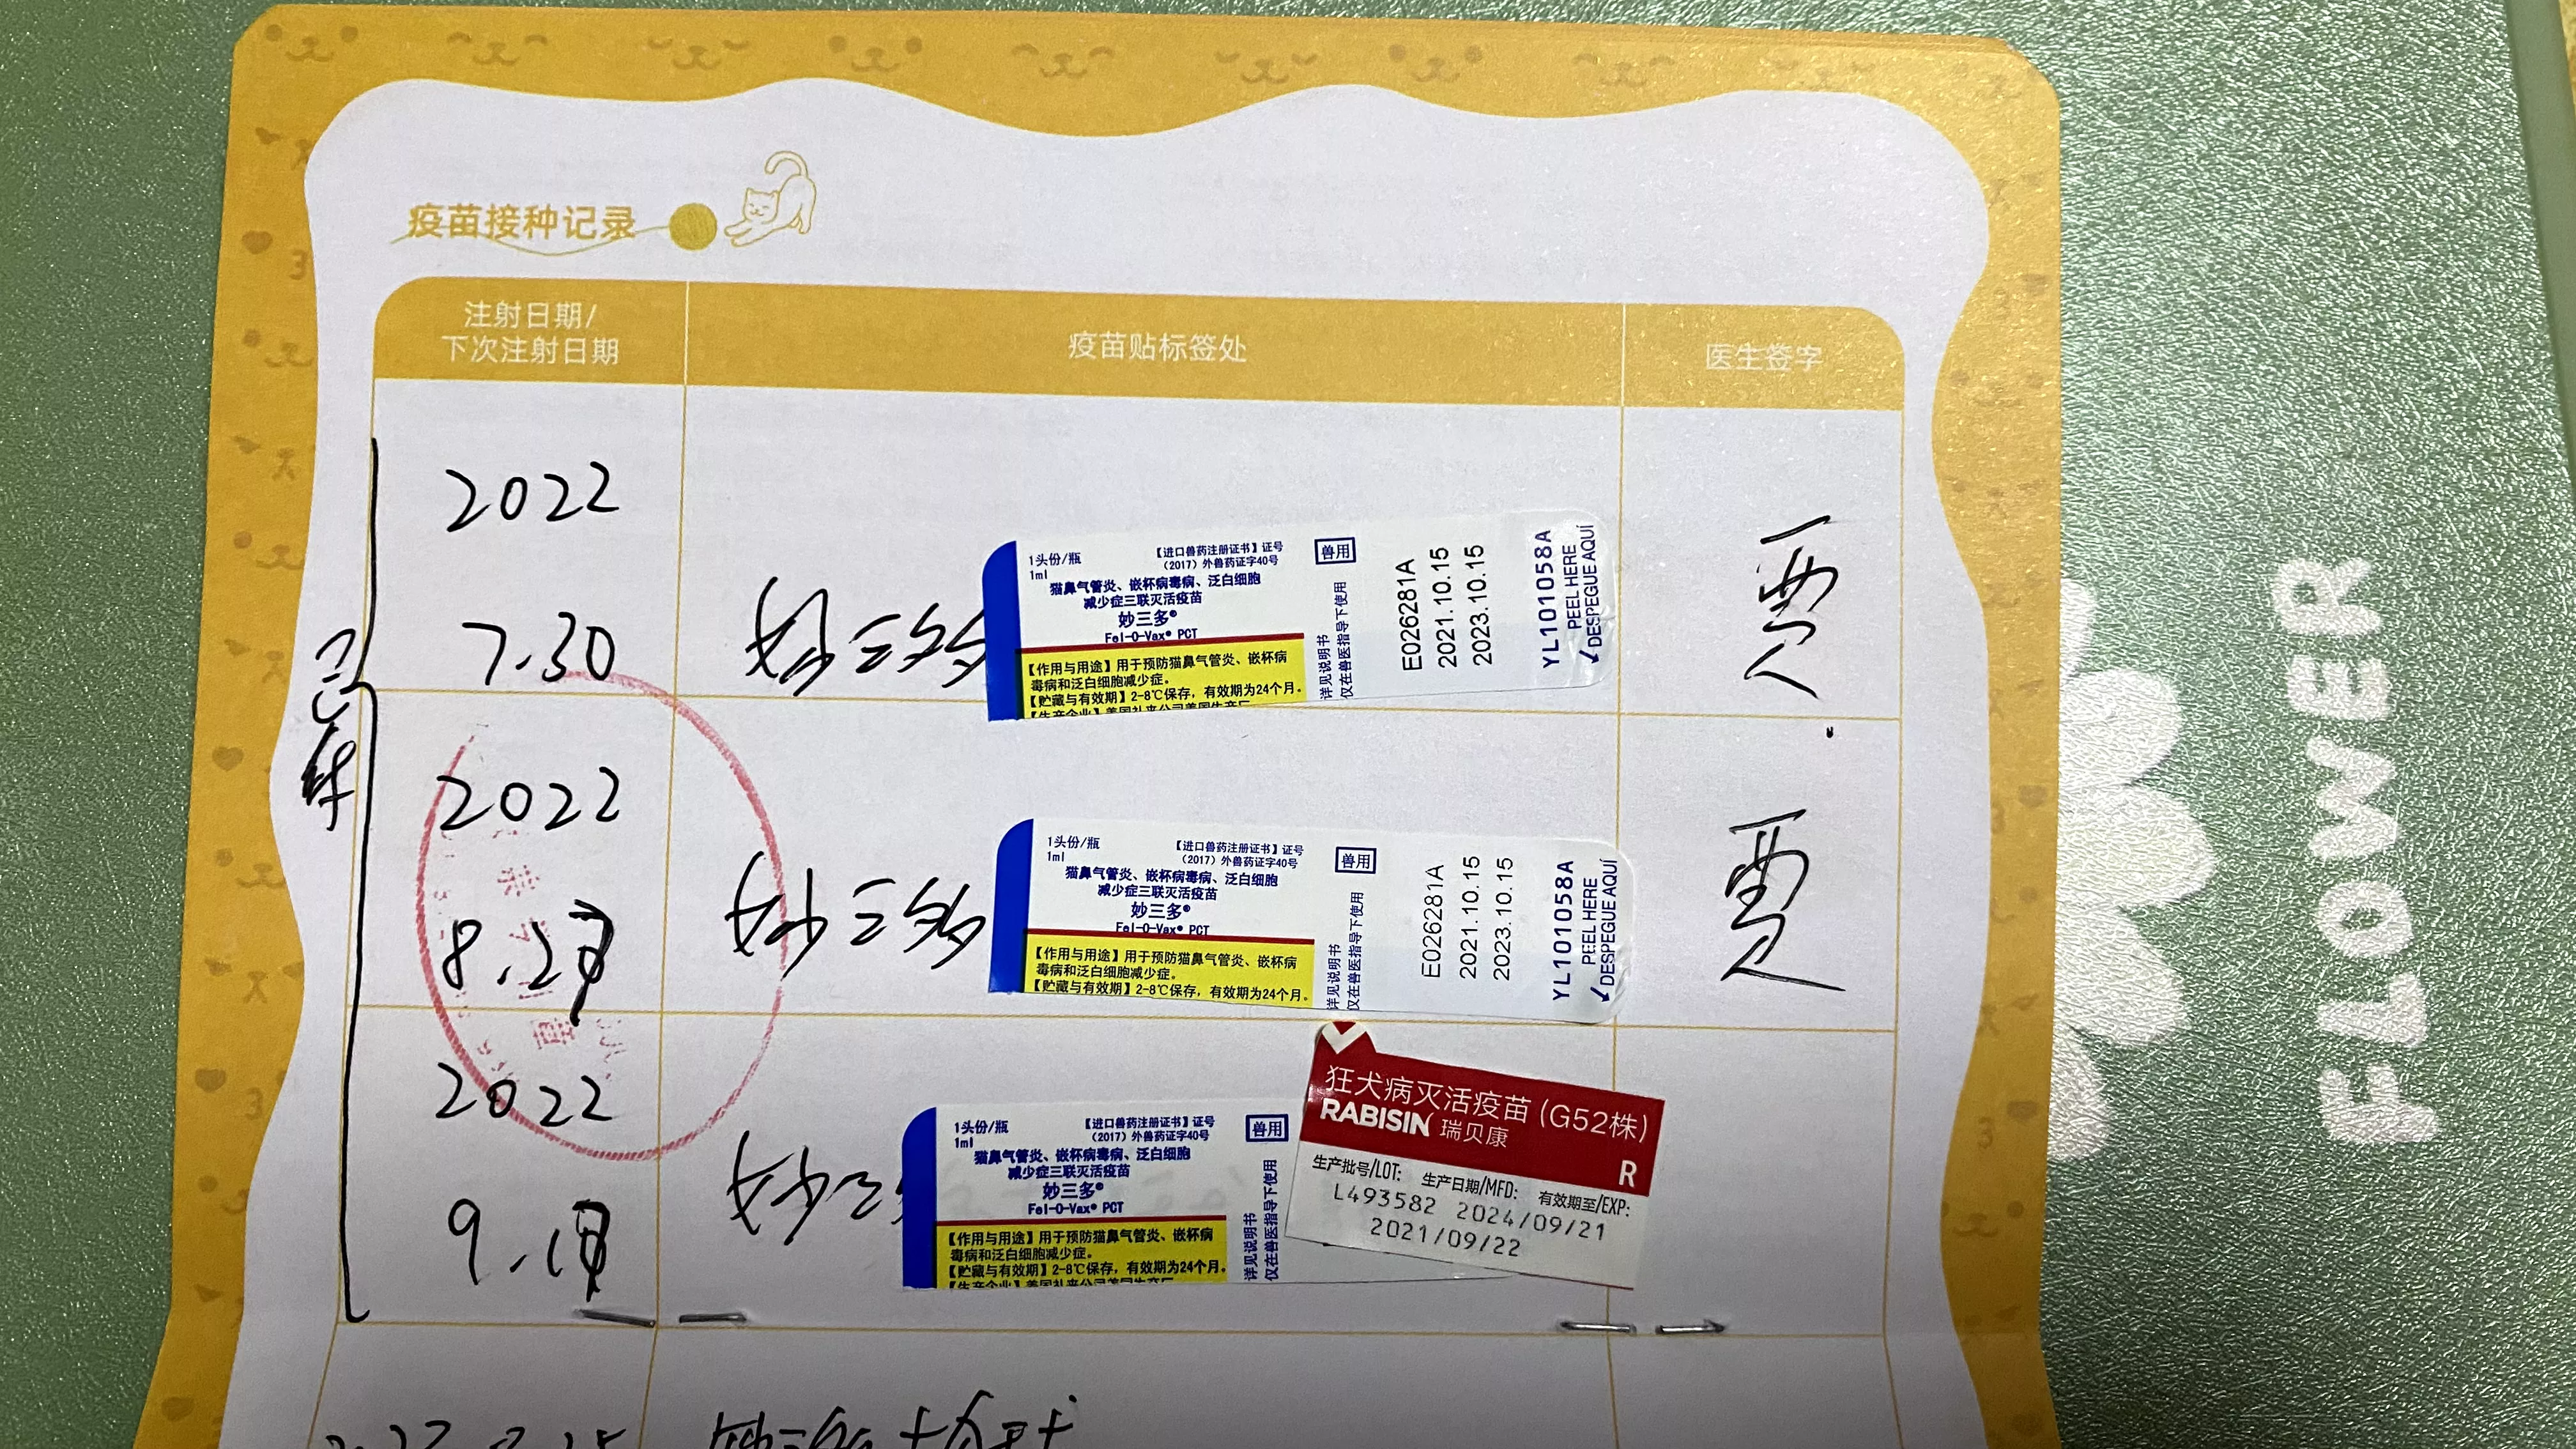 疫苗接种记录
注射日期/
下次注射日期
疫苗贴标签处
医生签字
2022
7.30
妙三多
1头份/瓶
1ml
【进口兽药注册证书】证号
(2017)外兽药证字40号
猫鼻气管炎、嵌杯病毒病、泛白细胞
减少症三联灭活疫苗
妙三多®
Fel-O-Vax® PCT
【作用与用途】用于预防猫鼻气管炎、嵌杯病
毒病和泛白细胞减少症。
【贮藏与有效期】2-8℃保存，有效期为24个月。
兽用
详见说明书
仅在兽医指导下使用
E026281A
2021.10.15
2023.10.15
YL101058A
PEEL HERE
DESPEGUE AQUÍ
贾
已年
2022
8.2
妙三多
1头份/瓶
1ml
【进口兽药注册证书】证号
(2017)外兽药证字40号
猫鼻气管炎、嵌杯病毒病、泛白细胞
减少症三联灭活疫苗
妙三多®
Fel-O-Vax® PCT
【作用与用途】用于预防猫鼻气管炎、嵌杯病
毒病和泛白细胞减少症。
【贮藏与有效期】2-8℃保存，有效期为24个月。
兽用
详见说明书
仅在兽医指导下使用
E026281A
2021.10.15
2023.10.15
YL101058A
PEEL HERE
DESPEGUE AQUÍ
贾
2022
9.1
妙三
1头份/瓶
1ml
【进口兽药注册证书】证号
(2017)外兽药证字40号
猫鼻气管炎、嵌杯病毒病、泛白细胞
减少症三联灭活疫苗
妙三多®
Fel-O-Vax® PCT
【作用与用途】用于预防猫鼻气管炎、嵌杯病
毒病和泛白细胞减少症。
【贮藏与有效期】2-8℃保存，有效期为24个月。
兽用
详见说明书
仅在兽医指导下使用
狂犬病灭活疫苗(G52株)
RABISIN 瑞贝康
R
生产批号/LOT: 生产日期/MFD: 有效期至/EXP:
L493582 2024/09/21
2021/09/22
FLOWER